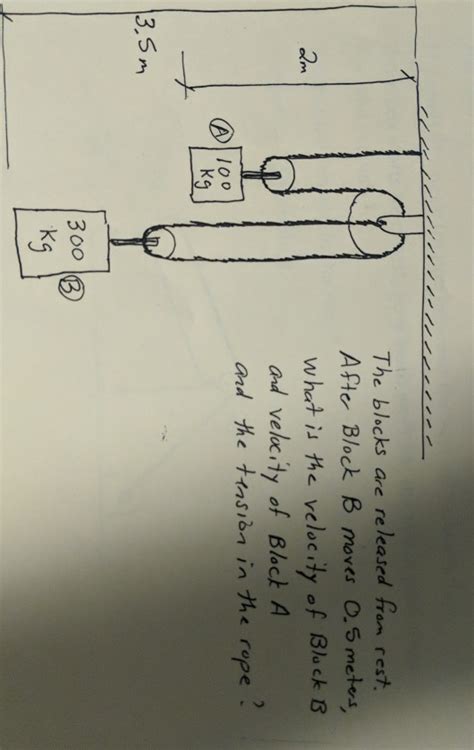 The blocks are released from rest.
After Block B moves 0.5 meters,
what is the velocity of Block B
and velocity of Block A
and the tension in the rope?
2m
3.5m
A
100
kg
300
kg
B